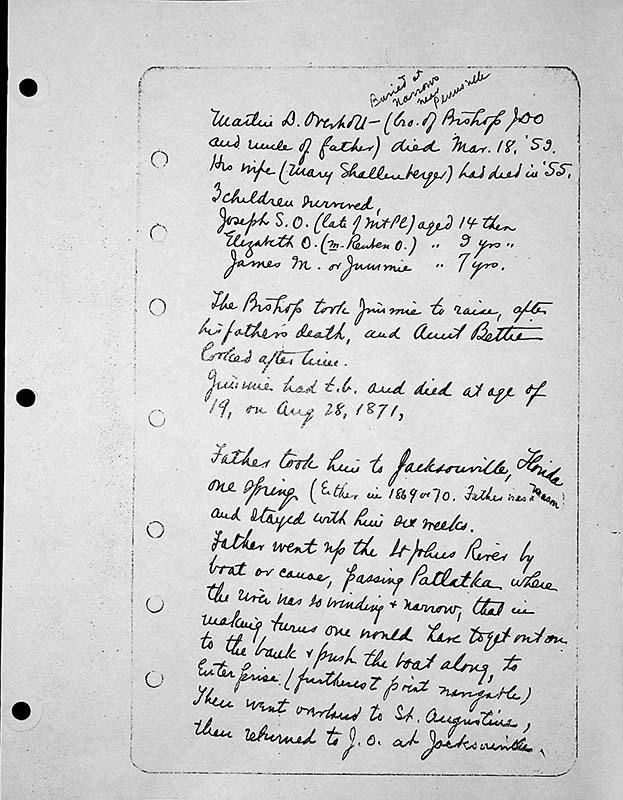 Buried at
Narrows
near
Pennsville
Martin D. Overholt - (bro. of Bishop JDO
and uncle of father) died Mar. 18, '59.
His wife (Mary Shallenberger) had died in '55.
3 children survived,
Joseph S. O. (late of Mt Pl) aged 14 then
Elizabeth O. (m. Reuben O.) " 9 yrs "
James M. or Jimmie " 7 yrs.
The Bishop took Jimmie to raise, after
his father's death, and Aunt Bettie
looked after him.
Jimmie had t.b. and died at age of
19, on Aug 28, 1871,
Father took him to Jacksonville, Florida
one Spring (Either in 1869 or 70. Father was a mason
and stayed with him six weeks.
Father went up the St Johns River by
boat or canoe, passing Patlatka where
the river was so winding & narrow, that in
making turns one would have to get out on
to the bank & push the boat along, to
Enterprise. (furtherest point navigable)
Then went overland to St. Augustine,
then returned to J. O. at Jacksonville.